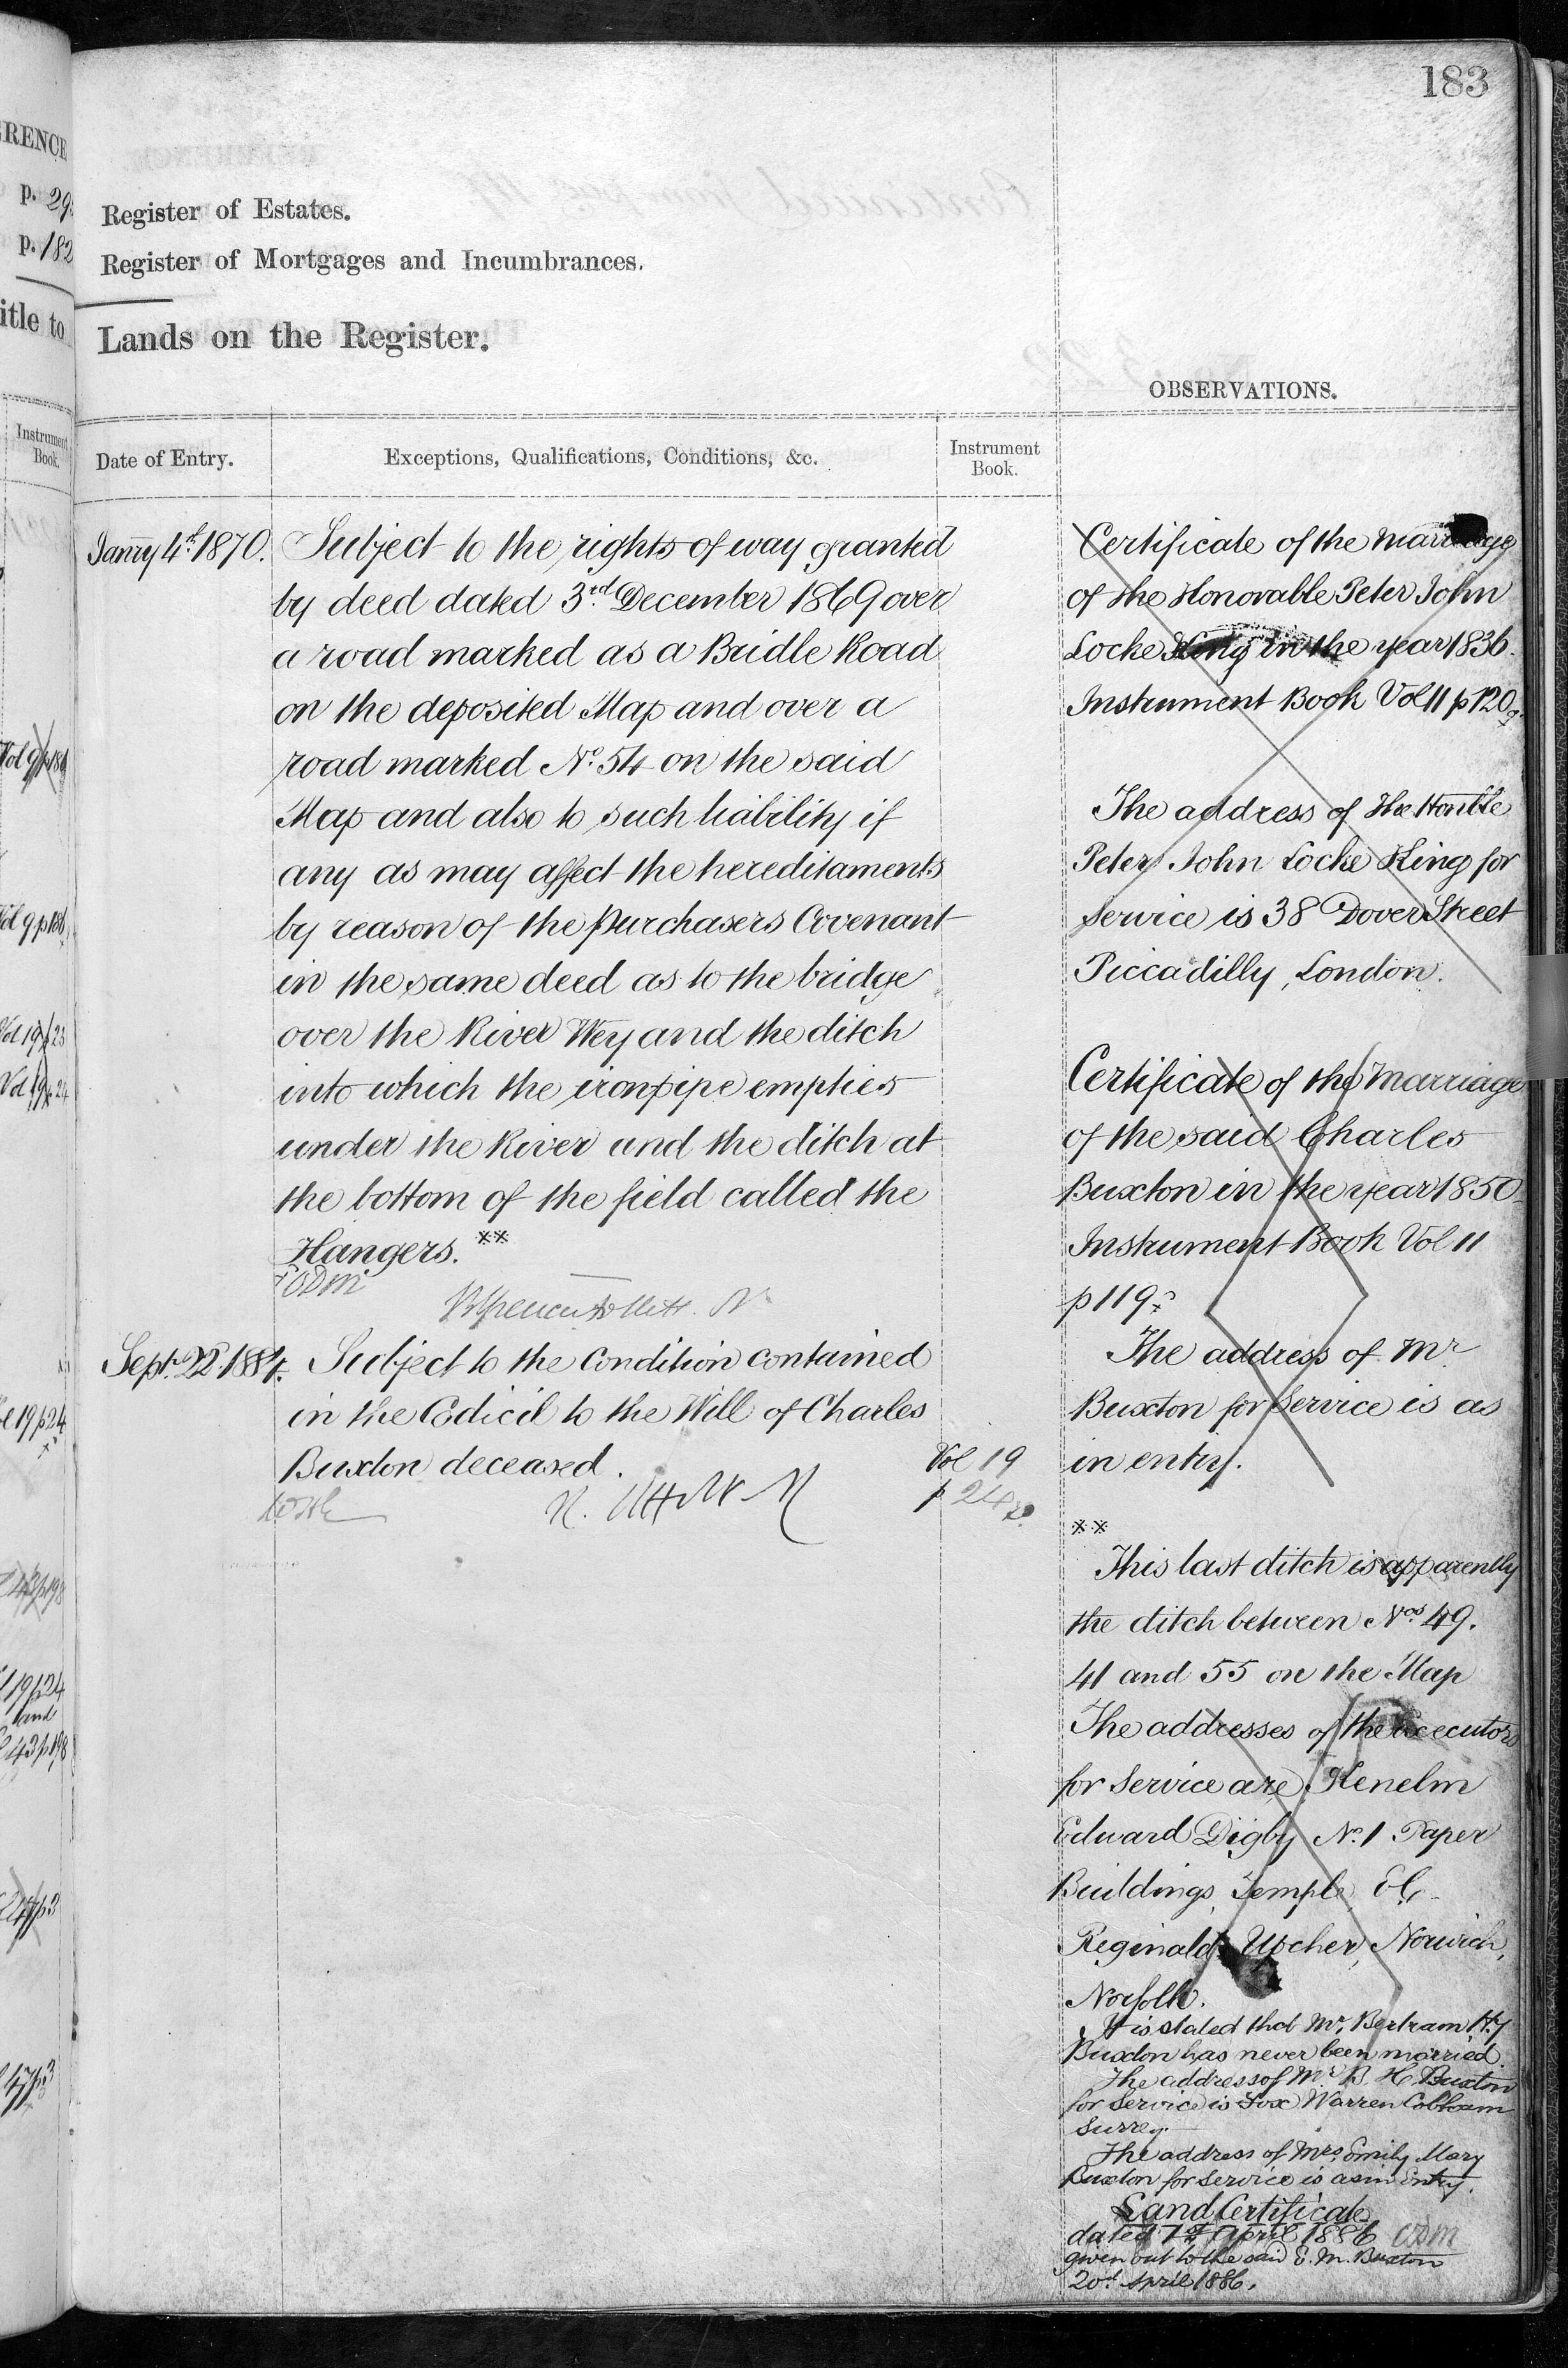 183
RENCE
p. 29
p. 182
itle to
Instrument
Book.
Vol 19 p 24
Register of Estates.
Register of Mortgages and Incumbrances.
Lands on the Register.
OBSERVATIONS.
Date of Entry.
Exceptions, Qualifications, Conditions, &c.
Instrument
Book.
Janry 4th 1870.
Subject to the rights of way granted
by deed dated 3rd December 1869 over
a road marked as a Bridle Road
on the deposited Map and over a
road marked No. 54 on the said
Map and also to such liability if
any as may affect the hereditaments
by reason of the purchasers Covenant
in the same deed as to the bridge
over the River Wey and the ditch
into which the iron pipe empties
under the River and the ditch at
the bottom of the field called the
Hangers. **
Sept. 22 1884.
Subject to the Condition contained
in the Codicil to the Will of Charles
Buxton deceased.
Vol 19
p 24
Certificate of the marriage
of the Honorable Peter John
Locke King in the year 1836.
Instrument Book Vol 11 p 120
The address of The Honble
Peter John Locke King for
Service is 38 Dover Street
Piccadilly, London.
Certificate of the Marriage
of the said Charles
Buxton in the year 1850
Instrument Book Vol 11
p 119
The address of Mr
Buxton for Service is as
in entry.
**
This last ditch is apparently
the ditch between Nos. 49.
41 and 55 on the Map
The addresses of the executors
for Service are Kenelm
Edward Digby No. 1 Paper
Buildings, Temple, E.C.
Reginald Upcher, Norwich,
Norfolk.
It is stated that Mr. Bertram Hy
Buxton has never been married.
The address of Mr B. H. Buxton
for Service is Fox Warren Cobham
Surrey.
The address of Mrs. Emily Mary
Buxton for Service is as in Entry.
Land Certificate
dated 17th April 1886
given out to the said E. M. Buxton
20th April 1886.